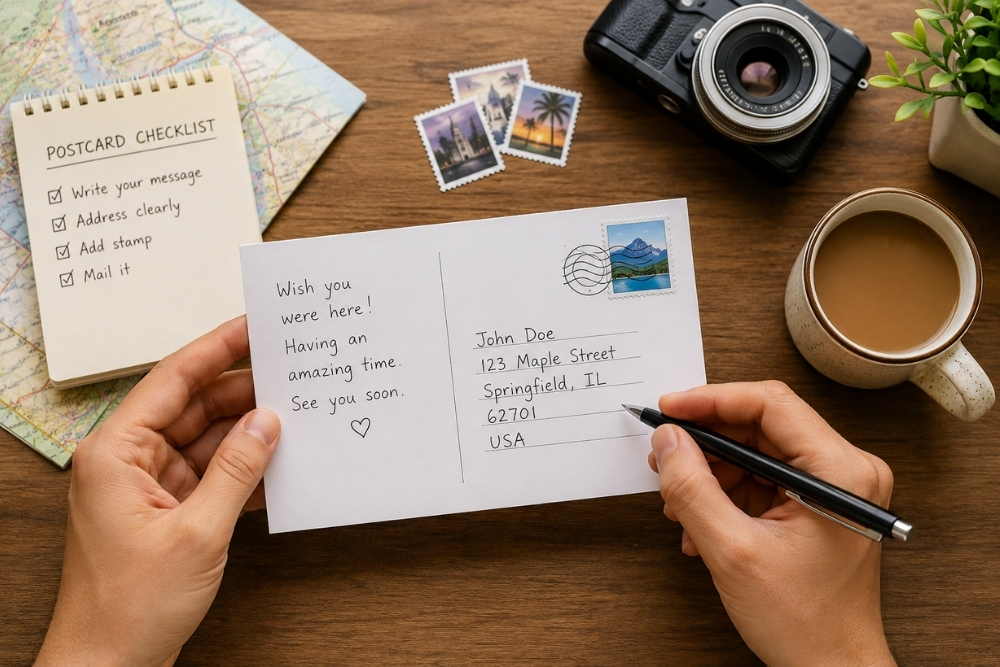 POSTCARD CHECKLIST
Write your message
Address clearly
Add stamp
Mail it
Wish you
were here!
Having an
amazing time.
See you soon.
John Doe
123 Maple Street
Springfield, IL
62701
USA